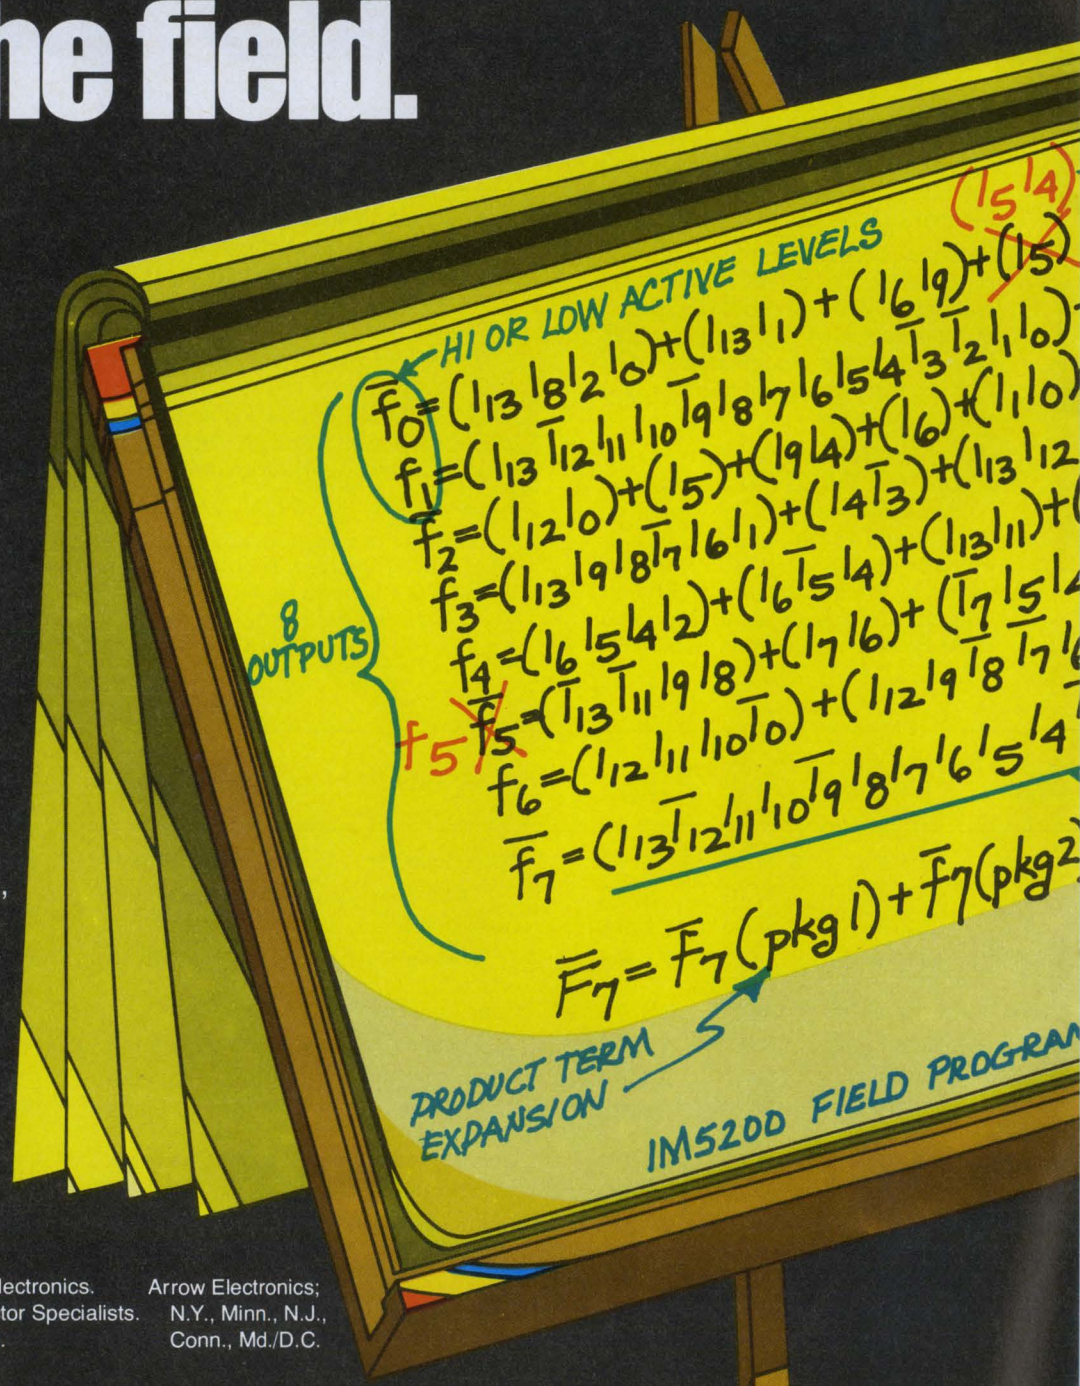 he field.
(I5I4)
HI OR LOW ACTIVE LEVELS
f̅0=(I13I8I2I0)+(I13I1)+(I6I9)+(I5)
f1=(I13I̅12I11I10I̅9I8I7I6I5I4I̅3I̅2I1I0)
f̅2=(I12I0)+(I5)+(I9I4)+(I6)+(I1I0)
f3=(I13I9I8I̅7I6I1)+(I4I̅3)+(I13I12
8
OUTPUTS
f4=(I6I5I4I2)+(I6I̅5I4)+(I13I11)+(
f5 f̅5=(I̅13I̅11I9I8)+(I7I6)+(I̅7I5I4
f6=(I12I11I10I̅0)+(I12I9I̅8I̅7I6
f̅7=(I13I̅12I11I10I̅9I8I7I6I5I4
F̅7=F̅7(pkg1)+F̅7(pkg2)
PRODUCT TERM
EXPANSION
IM5200 FIELD PROGRAM
lectronics.
tor Specialists.
.
Arrow Electronics;
N.Y., Minn., N.J.,
Conn., Md./D.C.